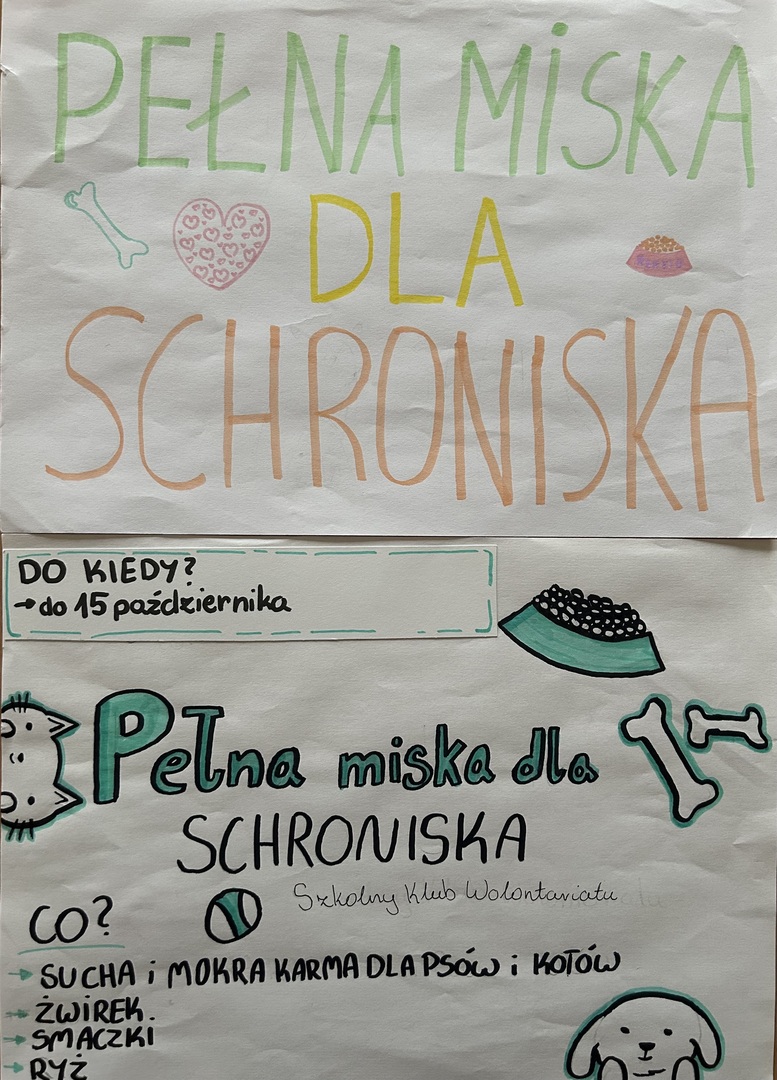 PEŁNA MISKA
DLA
SCHRONISKA
DO KIEDY?
→do 15 października
Pełna miska dla
SCHRONISKA
Szkolny Klub Wolontariatu
CO?
→ SUCHA i MOKRA KARMA DLA PSÓW i KOTÓW
→ ŻWIREK.
→ SMACZKI
→ RYŻ